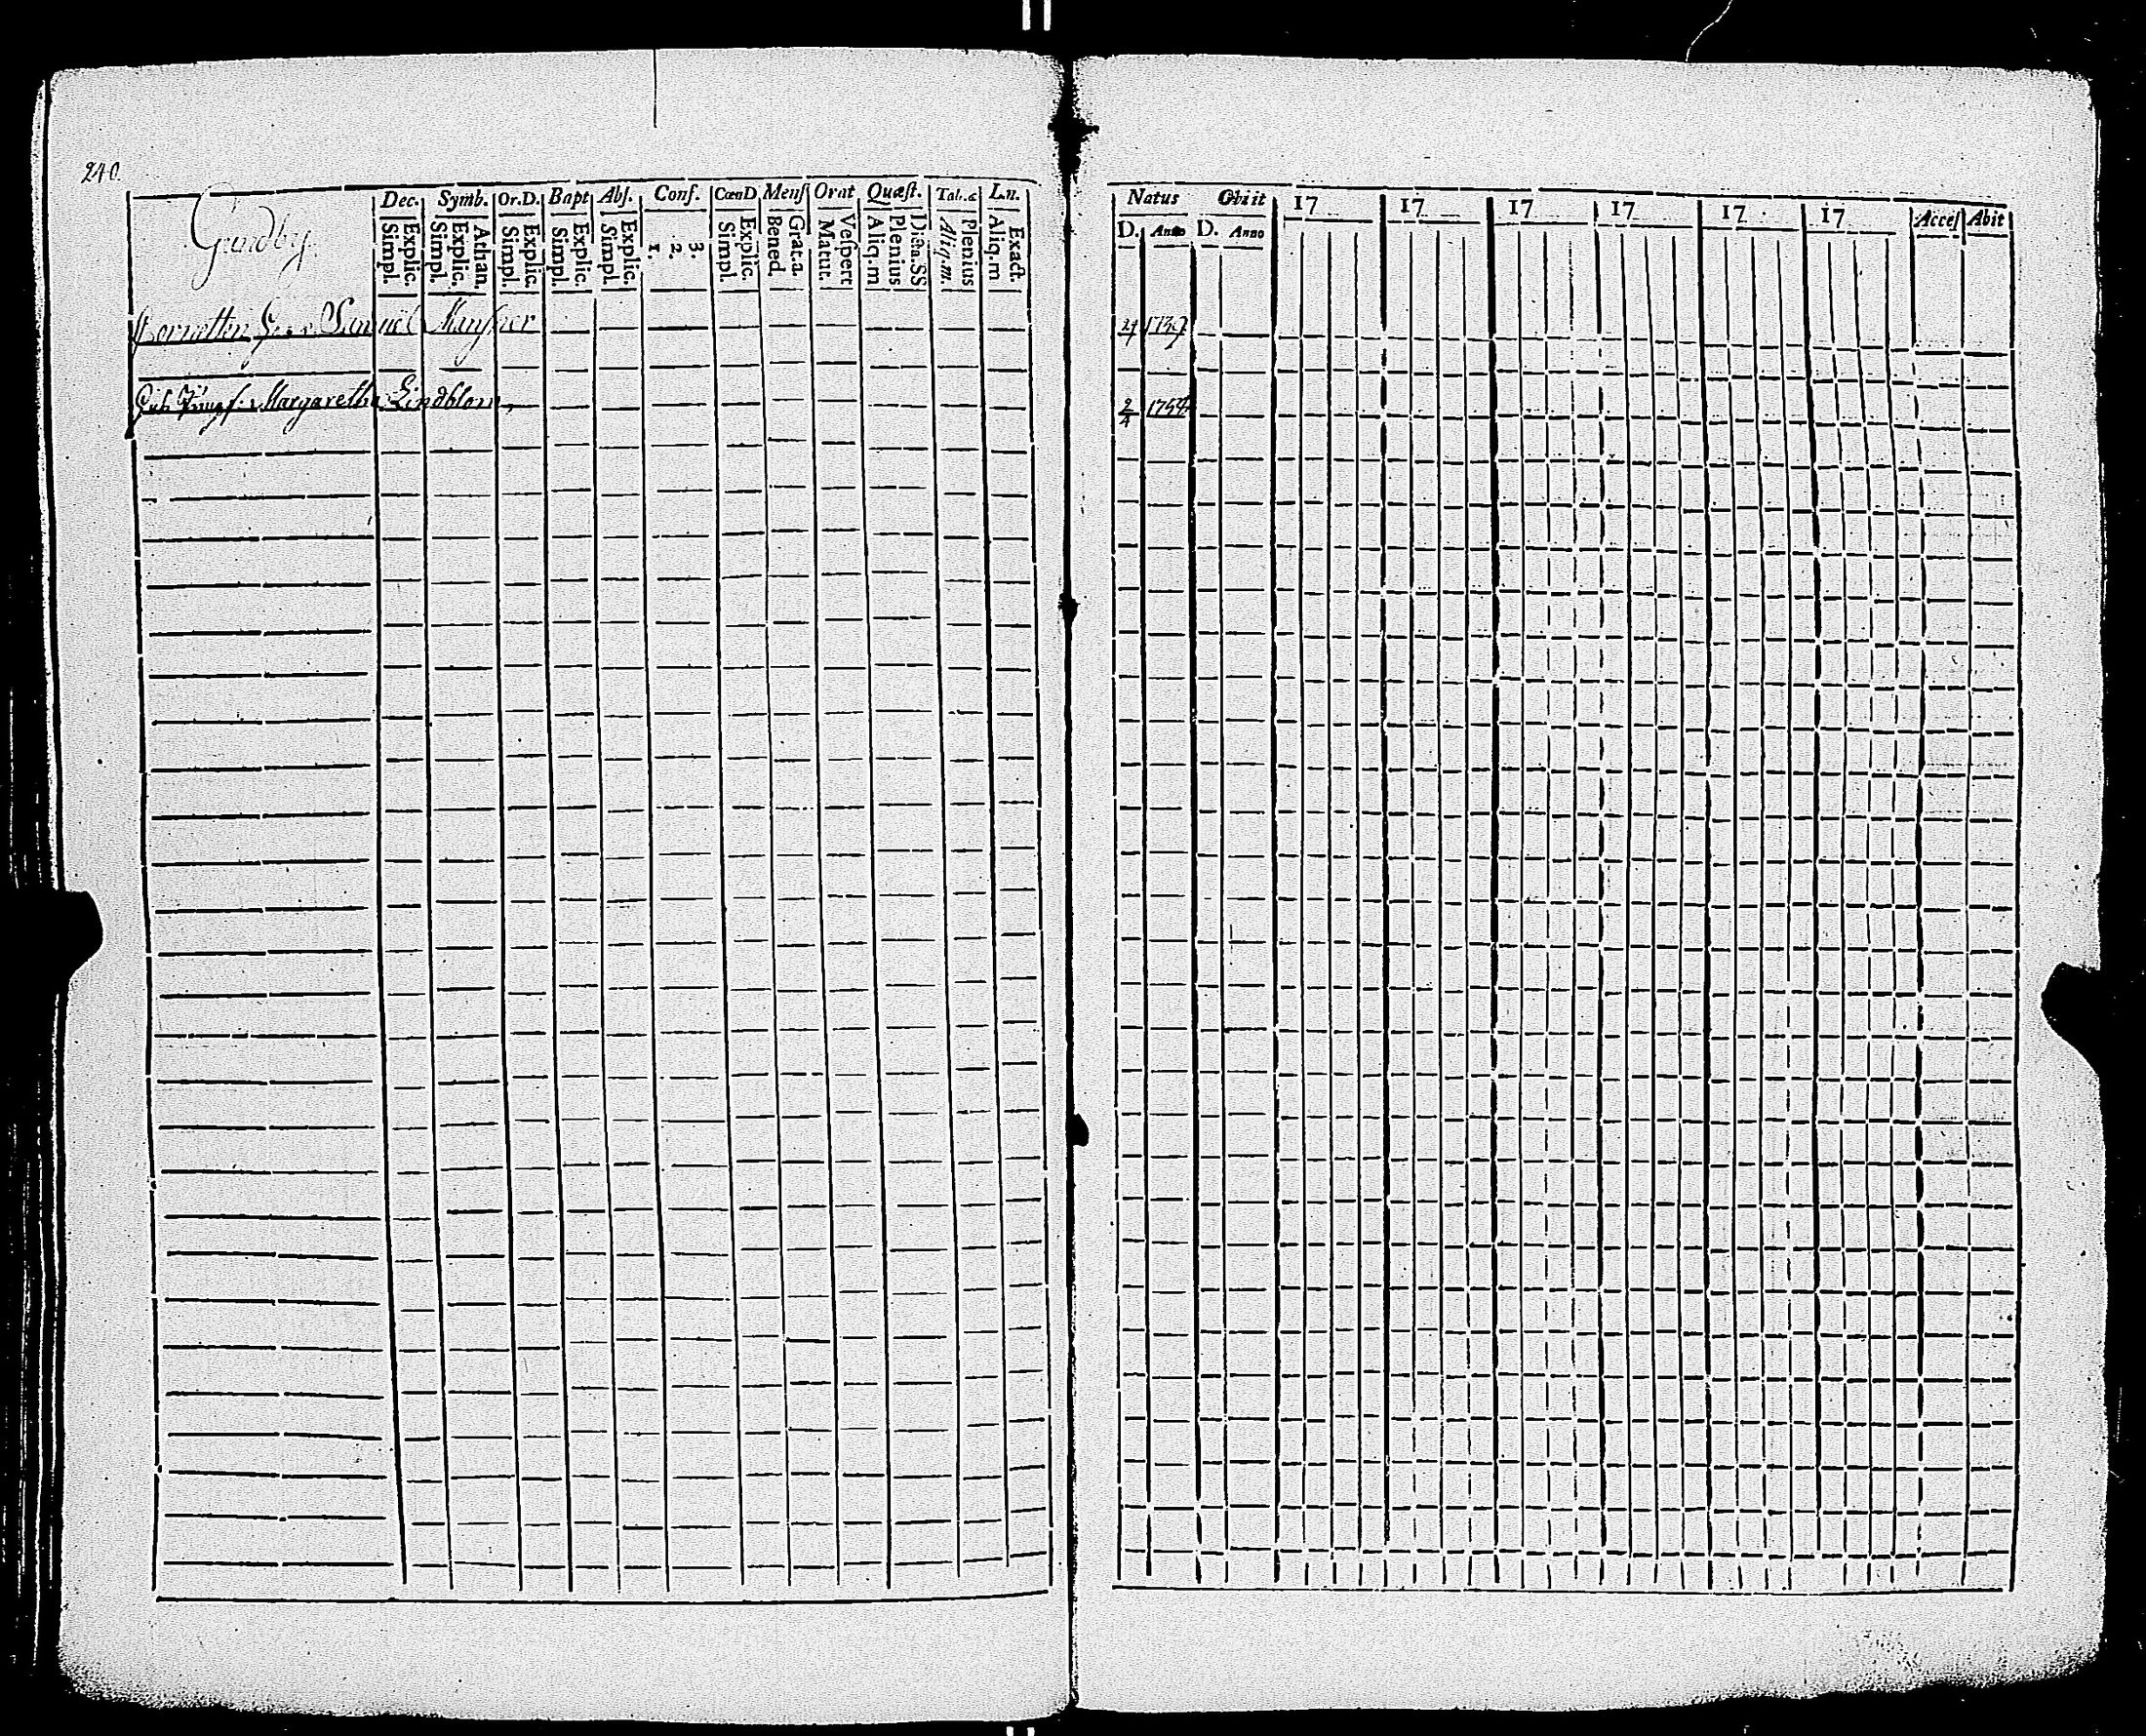 240.
Grundby.
Dec. Symb. Or.D. Bapt Abſ. Conf. CœnD Menſ Orat Quæſt. Tab.œ Ln.
Explic. Simpl. Athan. Explic. Simpl. Explic. Simpl. Explic. Simpl. Explic. Simpl. 3. 2. 1. Explic. Simpl. Grat.a. Bened. Veſpert Matut. Plenius Aliq.m Plenius Aliq.m. Exact. Aliq.m
Cornetten Samuel
Margaretha Lindblom,
Natus Obiit 17 17 17 17 17 17 Acceſ Abit
D. Anno D. Anno
1739
2/4 1754